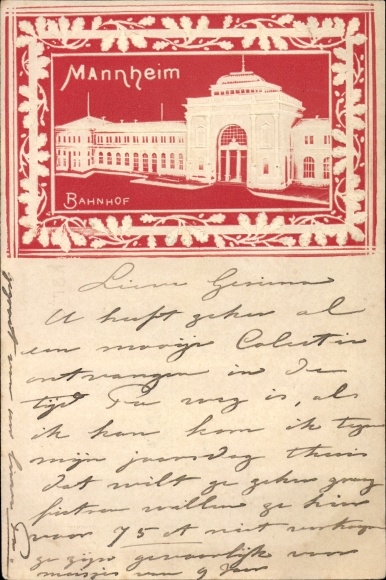 Mannheim
Bahnhof
Lieve Gesiena
U heeft zeker al
een mooije Colectie
ontvangen in de
tijd Pa weg is, als
ik kan kom ik tegen
mijn jaarsdag thuis
dat wilt ge zeker graag
fietsen willen ze hier
voor 75 ct niet verkoopen
ze zijn gevaarlijk voor
meisjes van 9 Jaar